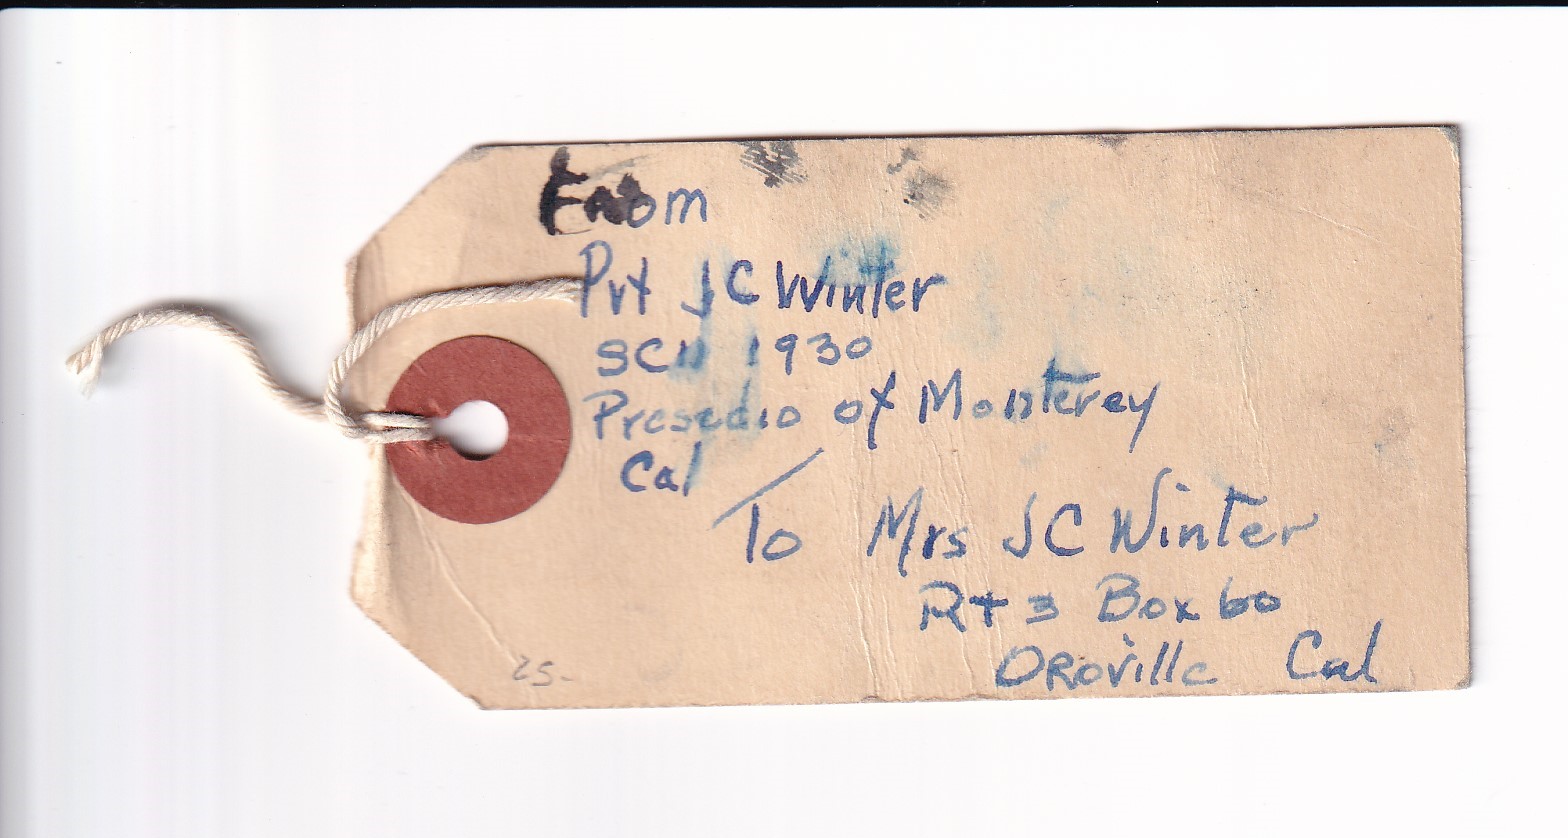 From
Pvt J C Winter
SCU 1930
Presedio of Monterey
Cal
To Mrs J C Winter
Rt 3 Box 60
Oroville Cal
25-